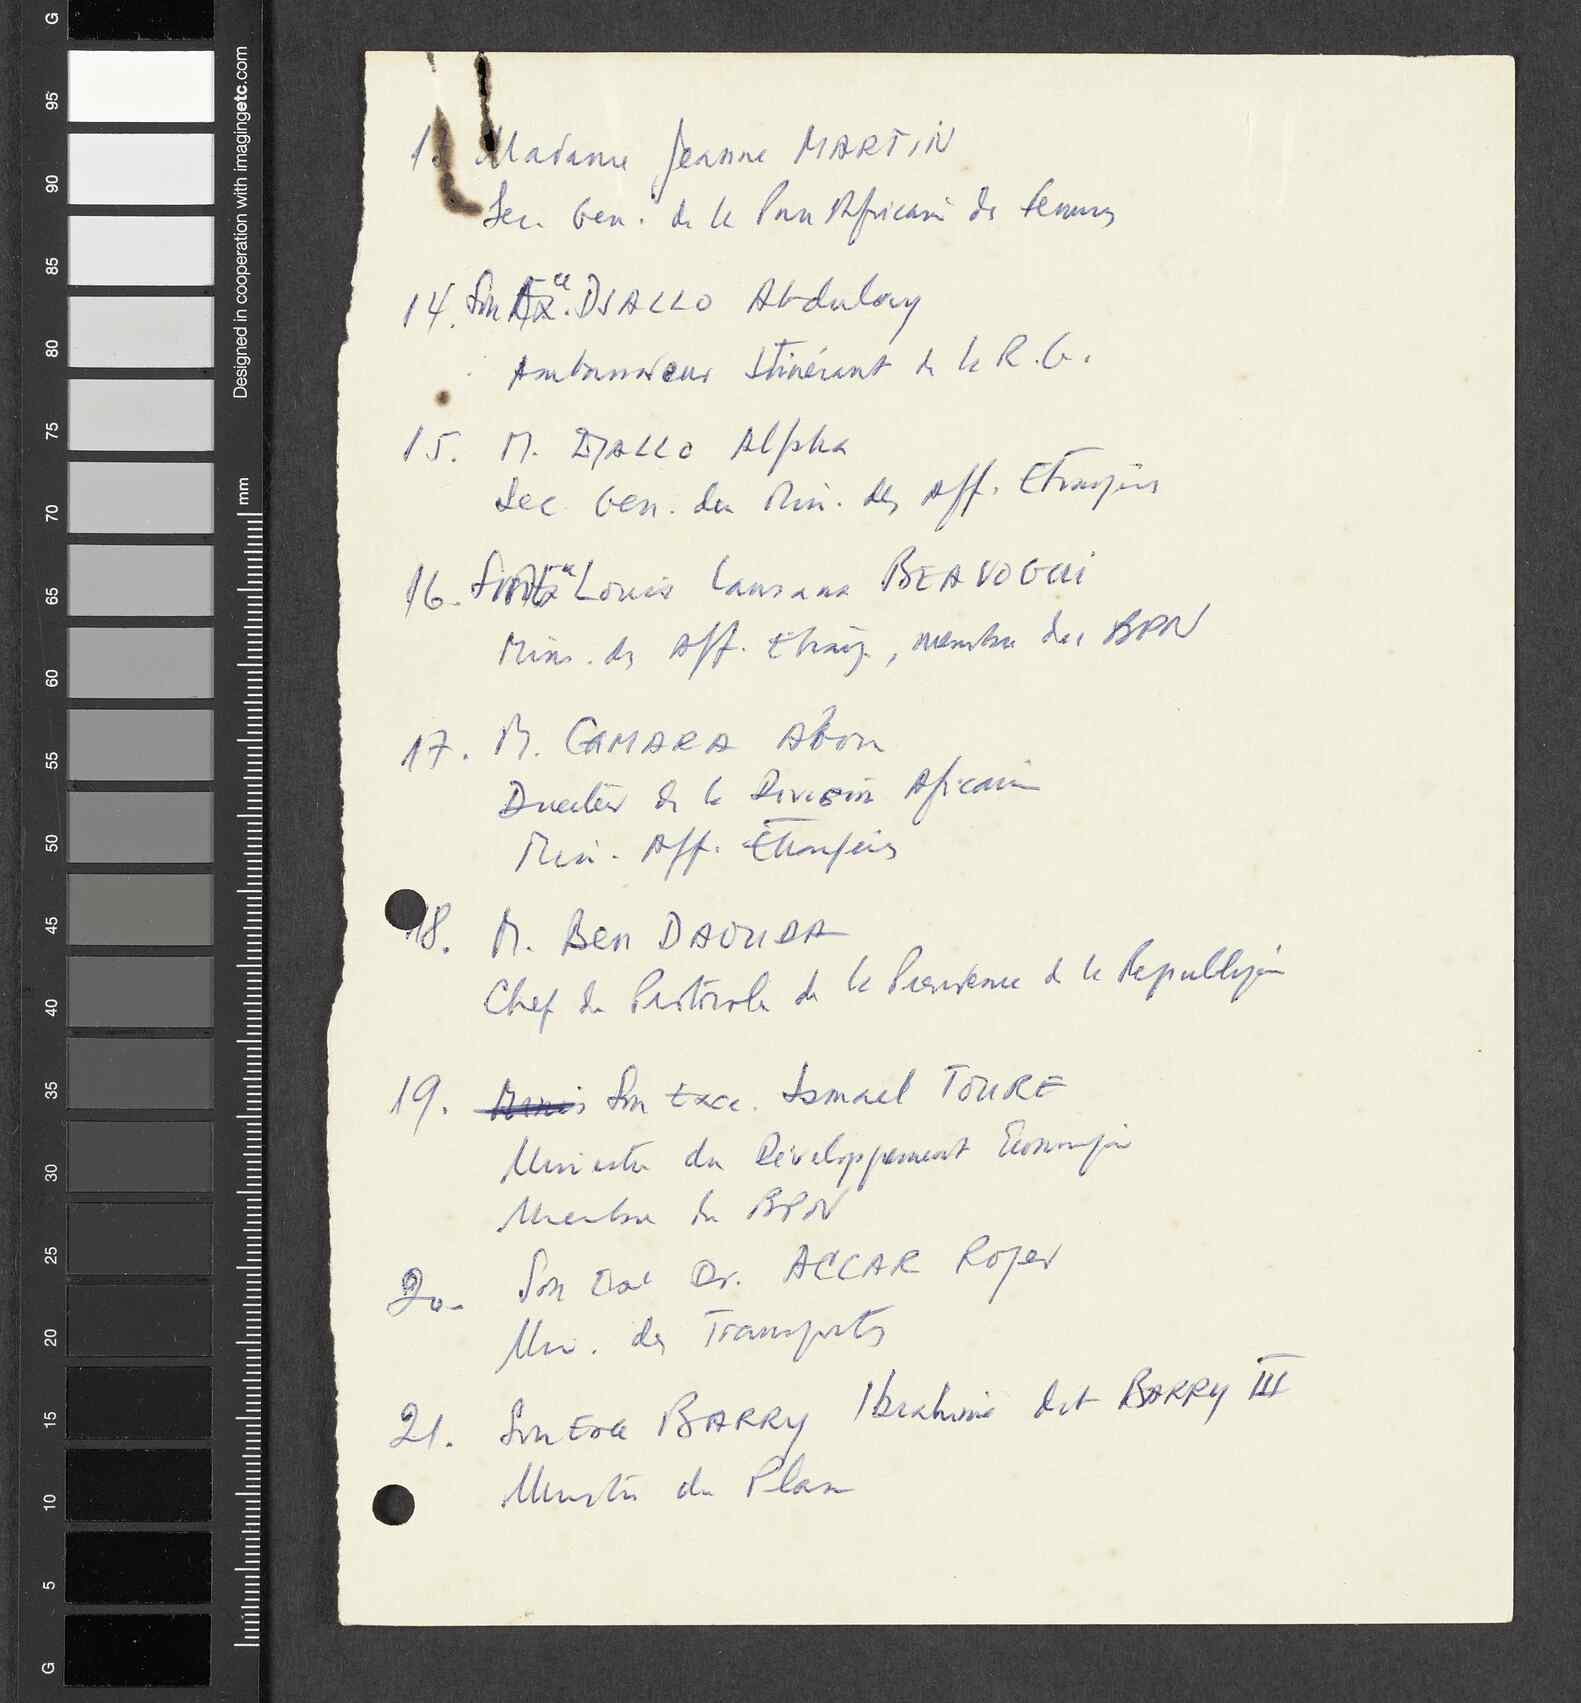 13. Madame Jeanne MARTIN
Sec. Gen. de la Pan Africaine des femmes
14. Son Exce. DIALLO Abdulay
Ambassadeur Itinérant de la R.G.
15. M. DIALLO Alpha
Sec Gen. du Min. des Aff. Etrangères
16. Son Louis Lansana BEAVOGUI
Min. des Aff. Etrang., membre du BPN
17. M. CAMARA Abou
Directeur de la Division Africaine
Min. Aff. Etrangères
18. M. Ben DAOUDA
Chef du Protocole de la Presidence de la Republique
19. Son Exce. Ismael TOURE
Ministre du Développement Economique
Membre du BPN
20. Son Exce Dr. ACCAR Roger
Min. des Transports
21. Son Exce BARRY Ibrahima dit BARRY III
Ministre du Plan
G
95
90
85
80
75
70
65
60
55
50
45
40
35
30
25
20
15
10
5
G
Designed in cooperation with imagingetc.com
mm